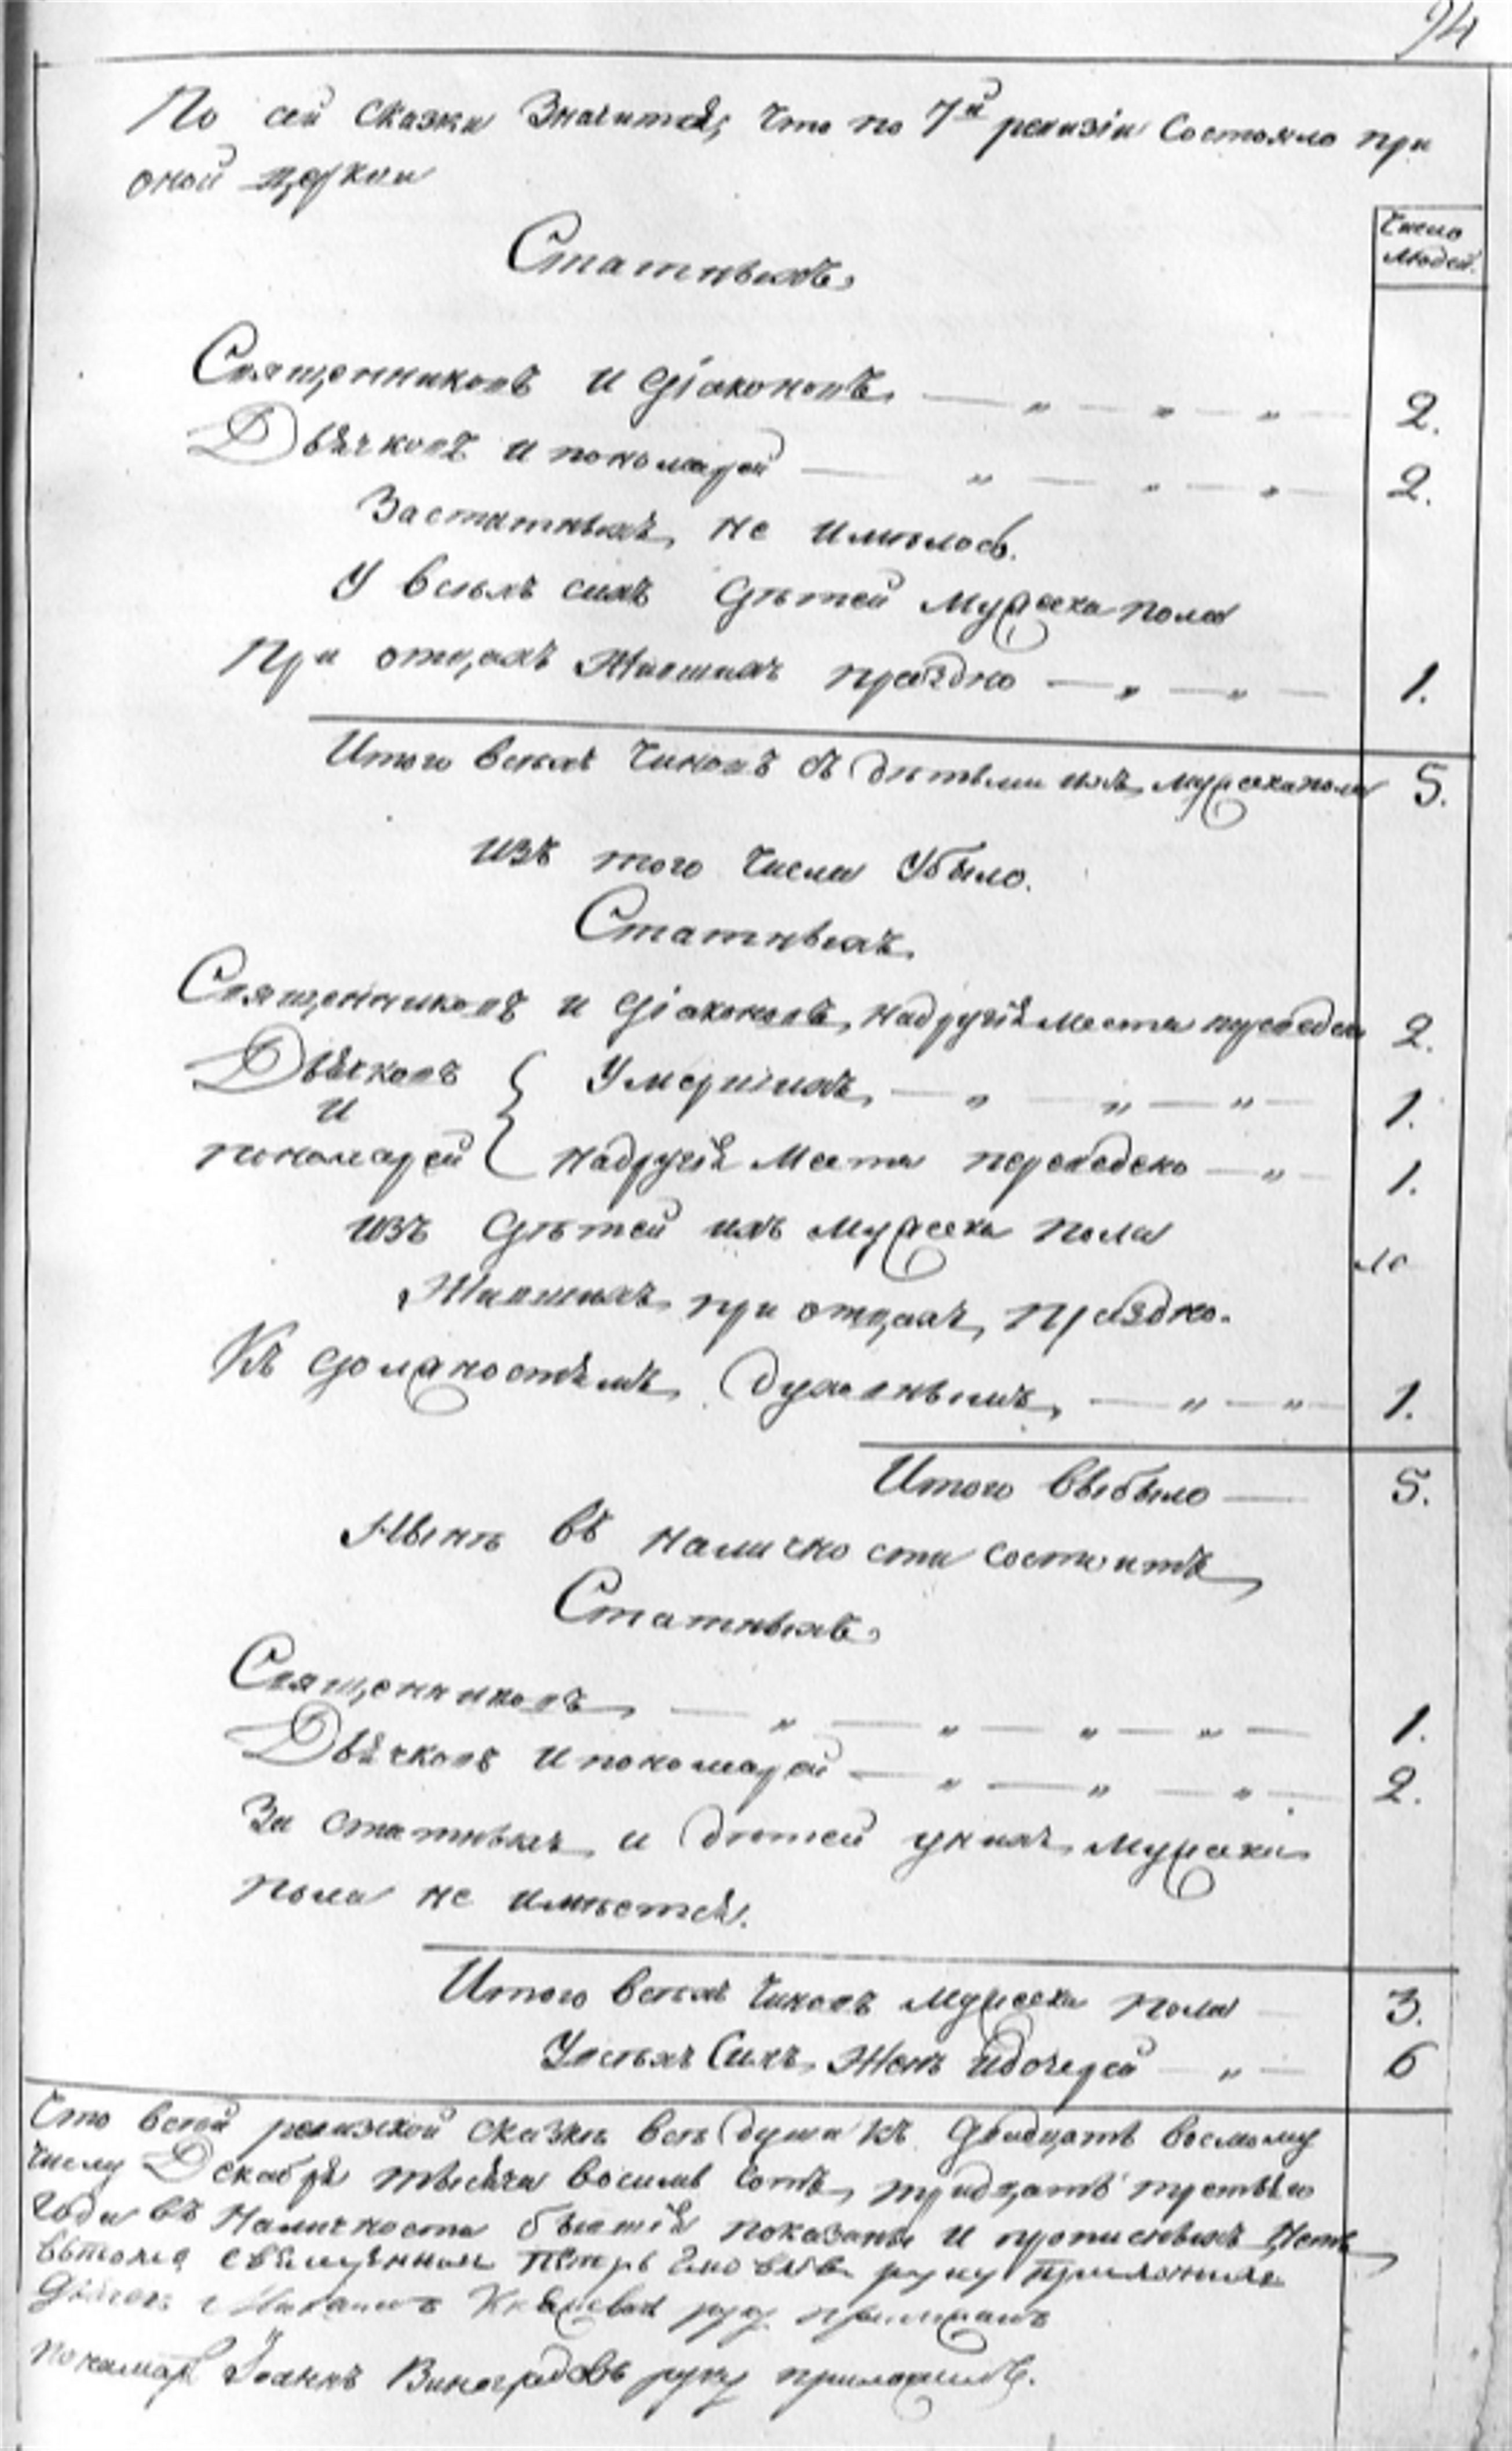 94
По сей сказки значится, что по 7й ревизіи состояло при
оной церкви
Число
людей.
Статныхъ
Священниковъ и діаконовъ — „ — „ — „ — 2.
Дьячковъ и пономарей — „ — „ — „ — 2.
Застатныхъ не имѣлось.
У всѣхъ сихъ дѣтей мужеска пола
При отцахъ жившихъ праздно — „ — „ — 1.
Итого всѣхъ чиновъ съ дѣтьми ихъ мужеска пола 5.
изъ того числа убыло.
Статныхъ
Священниковъ и діаконовъ на другія места переведено 2.
Дьячковъ { Умершихъ — „ — „ — „ — 1.
и
пономарей { на другія места переведено — „ — 1.
изъ дѣтей ихъ мужеска пола
Жившихъ при отцахъ праздно.
Къ должностямъ духовнымъ, — „ — „ 1.
Итого выбыло — 5.
Нынѣ въ наличности состоитъ
Статныхъ
Священниковъ — „ — „ — „ — „ — 1.
Дьячковъ и пономарей — „ — „ — „ — 2.
За статныхъ и дѣтей у нихъ мужеска
пола не имѣется.
Итого всѣхъ чиновъ мужеска пола 3.
У всѣхъ сихъ женъ и дочерей — „ — 6
Что в сей ревизской сказкѣ всѣ души къ двадцать восьмому
числу Декабря тысяча восемь сотъ тридцать третьяго
года въ наличности бывшія показаны и прописныхъ нетъ
в томъ священникъ Петръ руку приложилъ
Дьячокъ Михаилъ руку приложилъ
понамарь Іоаннъ Виноградовъ руку приложилъ.